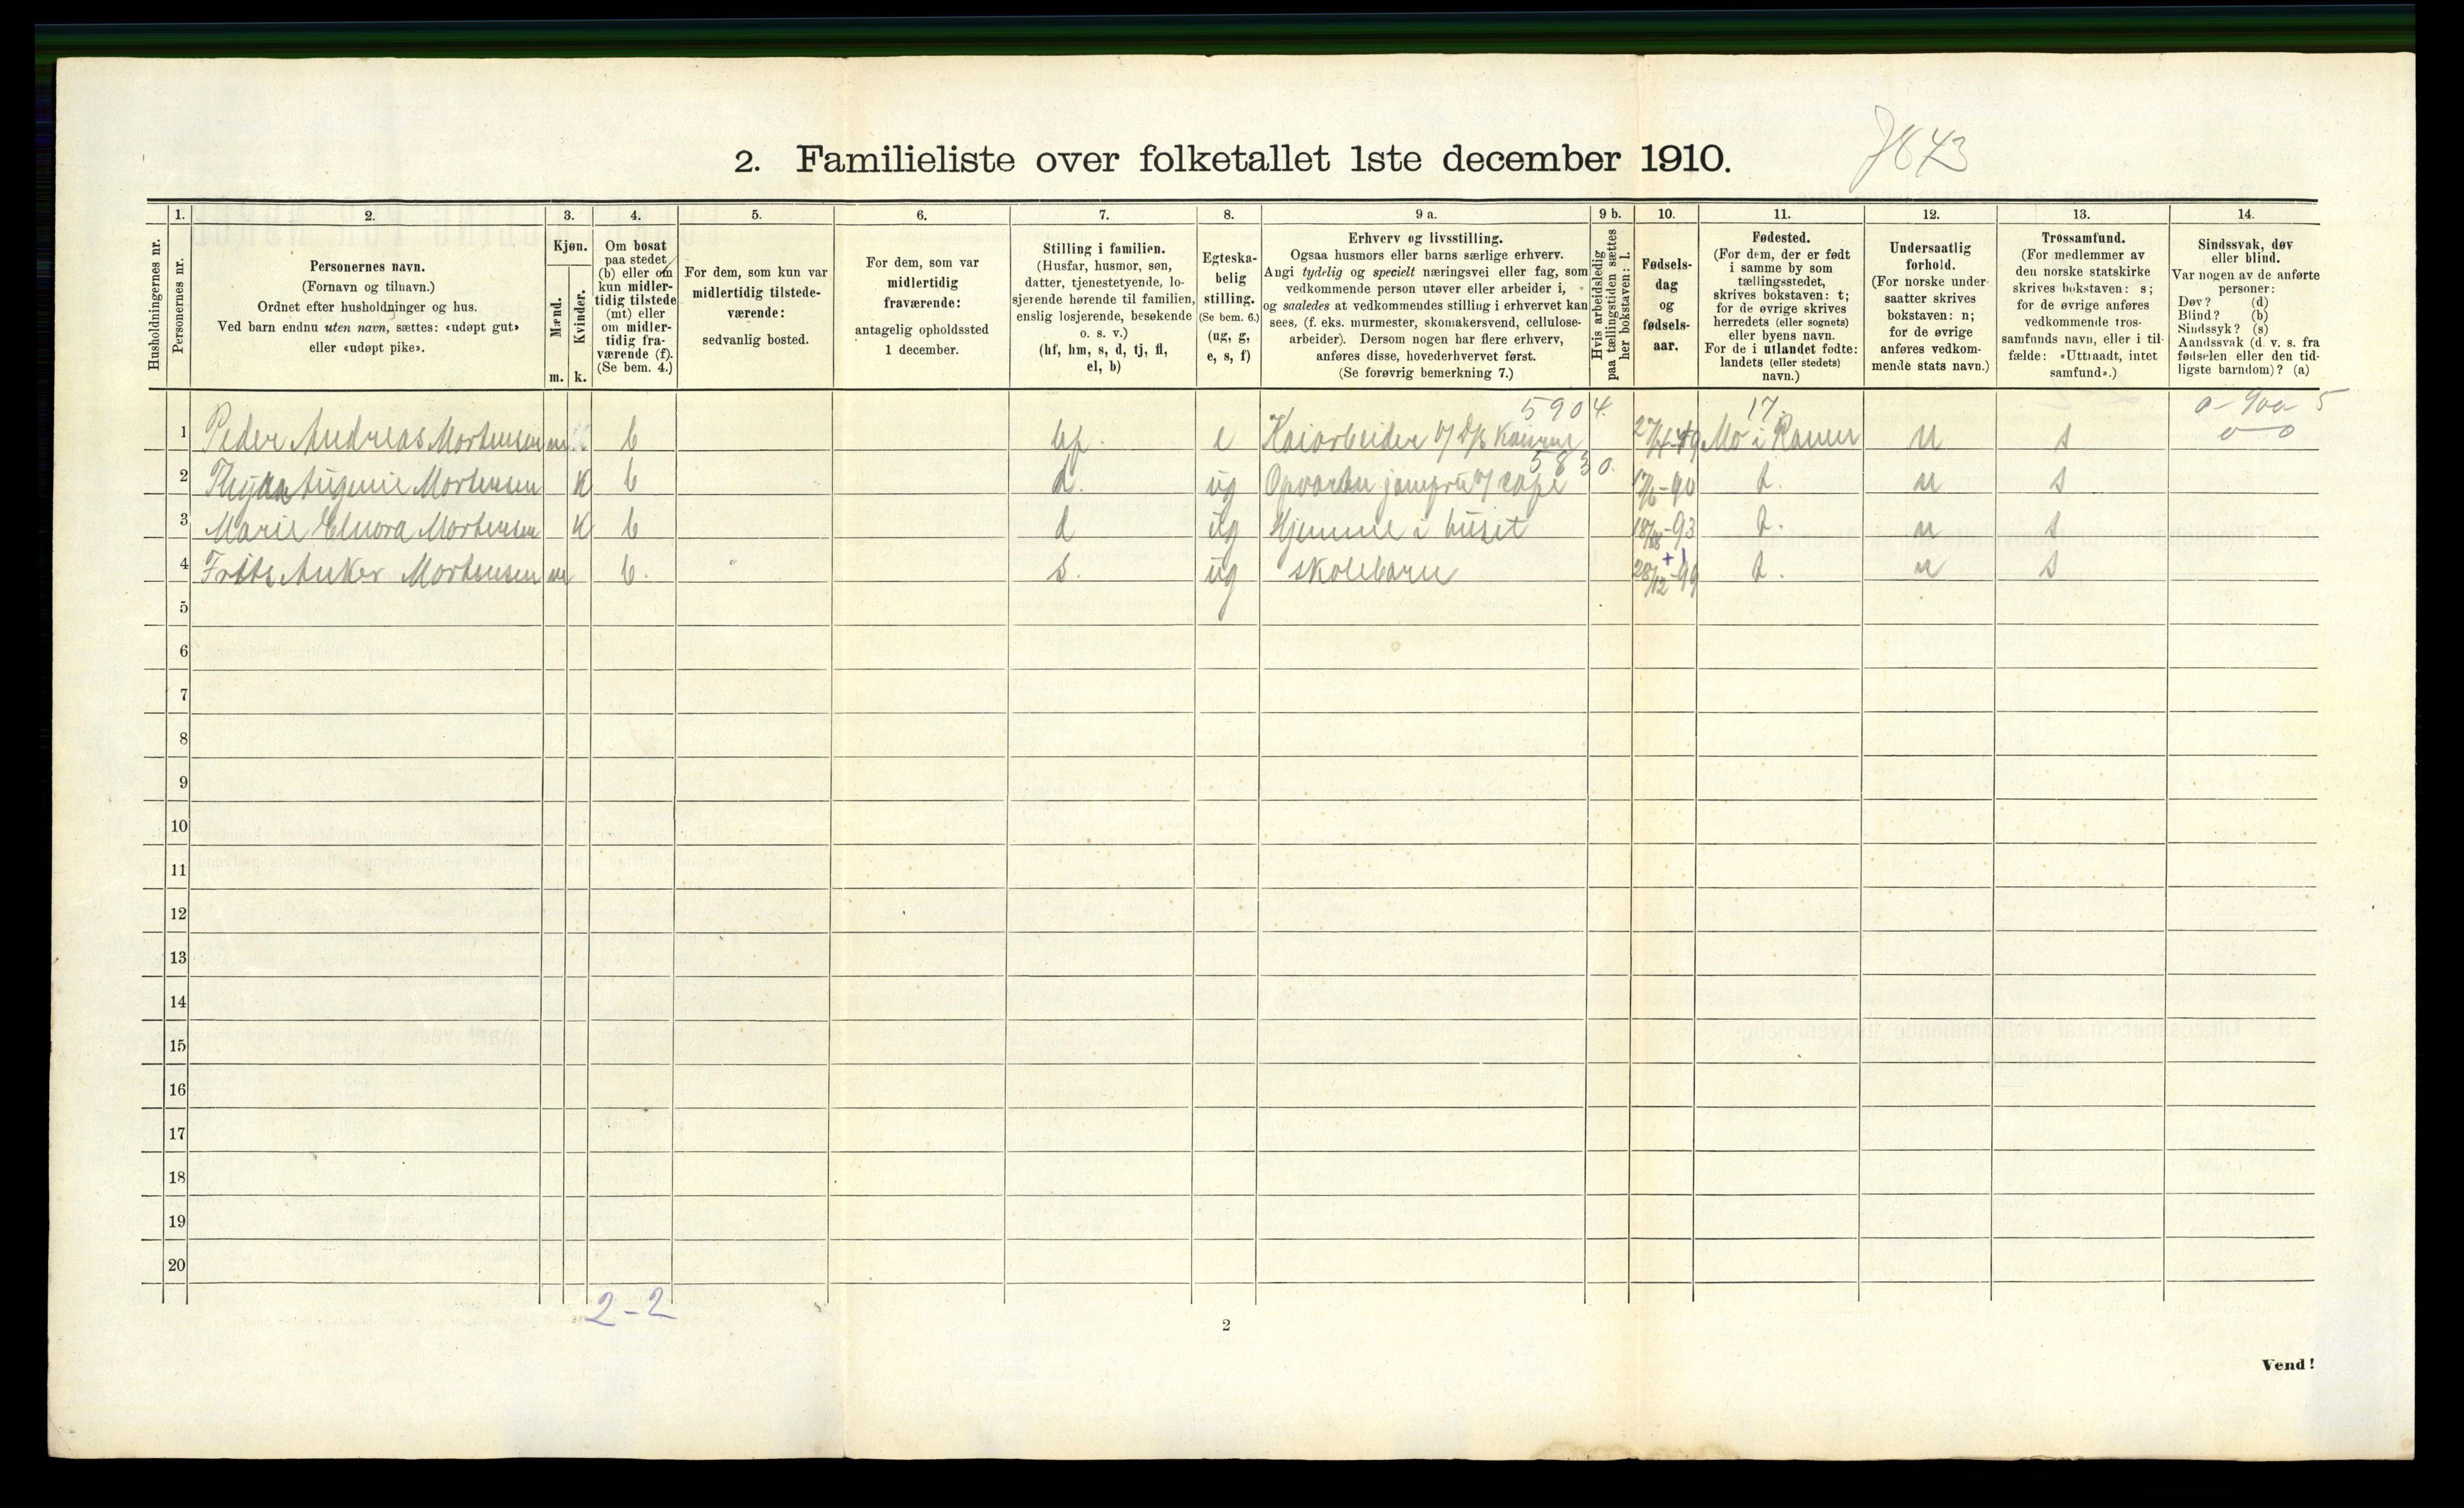 2. Familieliste over folketallet 1ste december 1910.
7643
1. 2. 3. 4. 5. 6. 7. 8. 9 a. 9 b. 10. 11. 12. 13. 14.
Husholdningernes nr.
Personernes nr.
Personernes navn.
(Fornavn og tilnavn.)
Ordnet efter husholdninger og hus.
Ved barn endnu uten navn, sættes: «udøpt gut»
eller «udøpt pike».
Kjøn.
Mænd.
Kvinder.
m. k.
Om bosat
paa stedet
(b) eller om
kun midler-
tidig tilstede
(mt) eller
om midler-
tidig fra-
værende (f).
(Se bem. 4.)
For dem, som kun var
midlertidig tilstede-
værende:
sedvanlig bosted.
For dem, som var
midlertidig
fraværende:
antagelig opholdssted
1 december.
Stilling i familien.
(Husfar, husmor, søn,
datter, tjenestetyende, lo-
sjerende hørende til familien,
enslig losjerende, besøkende
o. s. v.)
(hf, hm, s, d, tj, fl,
el, b)
Egteska-
belig
stilling.
(Se bem. 6.)
(ug, g,
e, s, f)
Erhverv og livsstilling.
Ogsaa husmors eller barns særlige erhverv.
Angi tydelig og specielt næringsvei eller fag, som
vedkommende person utøver eller arbeider i,
og saaledes at vedkommendes stilling i erhvervet kan
sees, (f. eks. murmester, skomakersvend, cellulose-
arbeider). Dersom nogen har flere erhverv,
anføres disse, hovederhvervet først.
(Se forøvrig bemerkning 7.)
Hvis arbeidsledig
paa tællingstiden sættes
her bokstaven: l.
Fødsels-
dag
og
fødsels-
aar.
Fødested.
(For dem, der er født
i samme by som
tællingsstedet,
skrives bokstaven: t;
for de øvrige skrives
herredets (eller sognets)
eller byens navn.
For de i utlandet fødte:
landets (eller stedets)
navn.)
Undersaatlig
forhold.
(For norske under-
saatter skrives
bokstaven: n;
for de øvrige
anføres vedkom-
mende stats navn.)
Trossamfund.
(For medlemmer av
den norske statskirke
skrives bokstaven: s;
for de øvrige anføres
vedkommende tros-
samfunds navn, eller i til-
fælde: «Uttraadt, intet
samfund».)
Sindssvak, døv
eller blind.
Var nogen av de anførte
personer:
Døv? (d)
Blind? (b)
Sindssyk? (s)
Aandssvak (d. v. s. fra
fødselen eller den tid-
ligste barndom)? (a)
5904. 17.
1 Peder Andreas Mortensen m b hf. e Kaiarbeider v/ D/s 27/4-49 Mo i Ranen n s
5830.
2 Mortensen k b d. ug jomfru v/ cafe 17/6-90 t. n s
3 Marie Elnora Mortensen k b d ug Hjemme i huset -93 t. n s
4 Frits Anker Mortensen m b. s. ug skolebarn 28/12-99 t. n s
5
6
7
8
9
10
11
12
13
14
15
16
17
18
19
20
2-2
2
Vend!